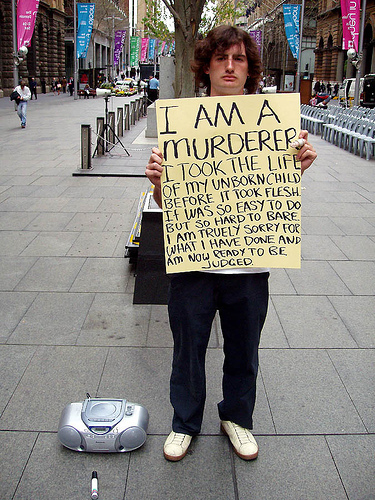 I AM A
MURDERER
I TOOK THE LIFE
OF MY UNBORN CHILD
BEFORE IT TOOK FLESH.
IT WAS SO EASY TO DO
BUT SO HARD TO BARE.
I AM TRUELY SORRY FOR
WHAT I HAVE DONE AND
AM NOW READY TO BE
JUDGED.